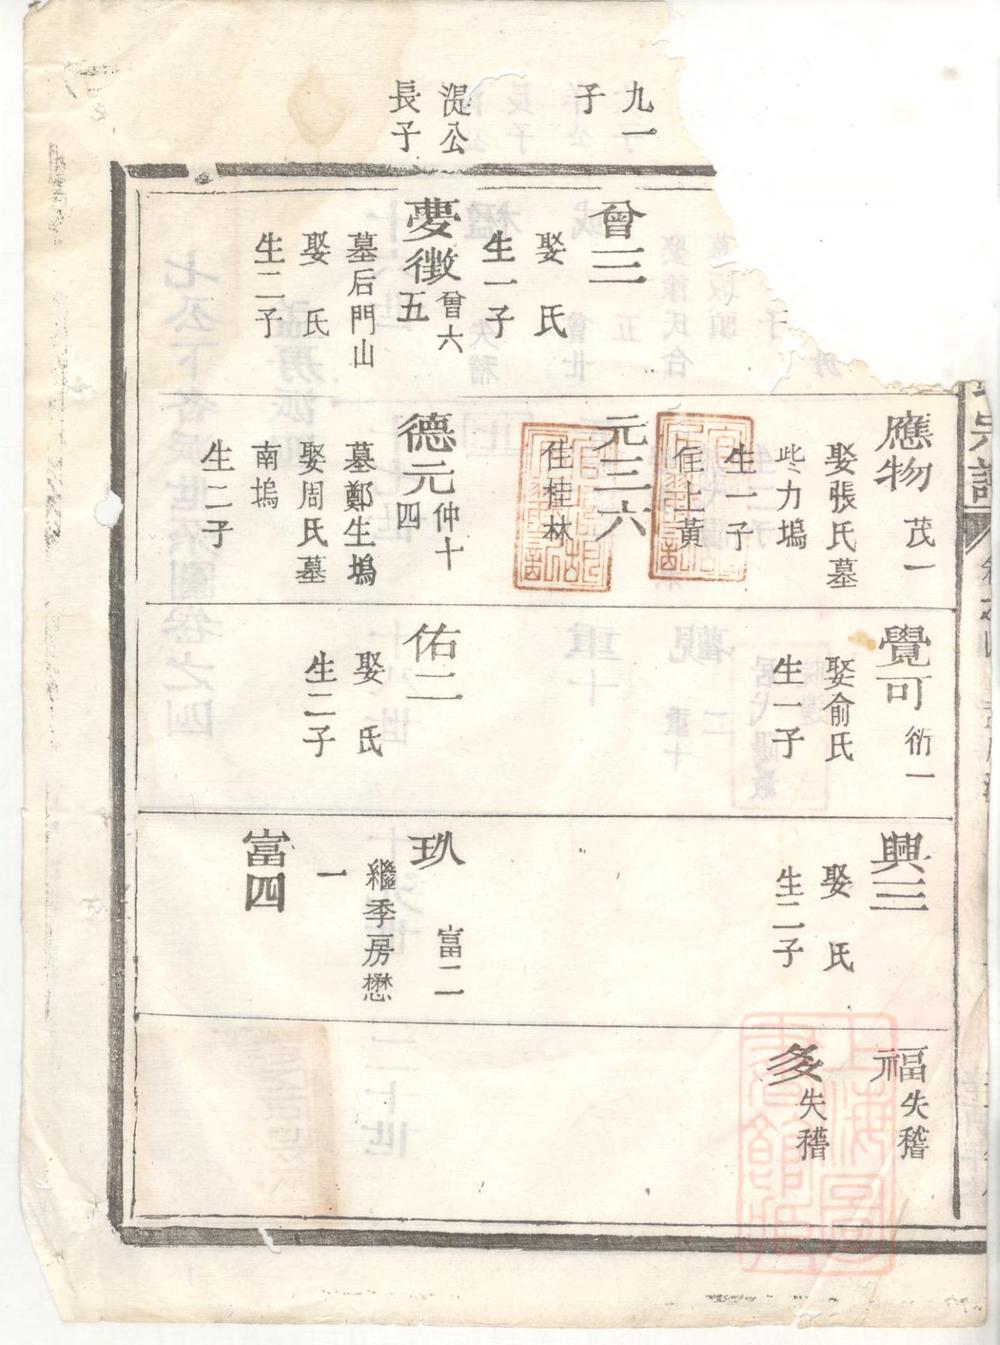 九一
子
湜公
長子
曾三
娶　氏
生一子
夢徵 曾六
五
墓后門山
娶　氏
生二子
應物 茂一
娶張氏墓
坣力塢
生一子
住上黃
元三六
住桂林
德元 仲十
四
墓鄭生塢
娶周氏墓
南塢
生二子
覺可 衍一
娶俞氏
生一子
佑二
娶　氏
生二子
興三
娶　氏
生二子
玖 富二
繼季房懋
一
富四
福 失稽
多 失稽
宗譜
上海圖
書館藏